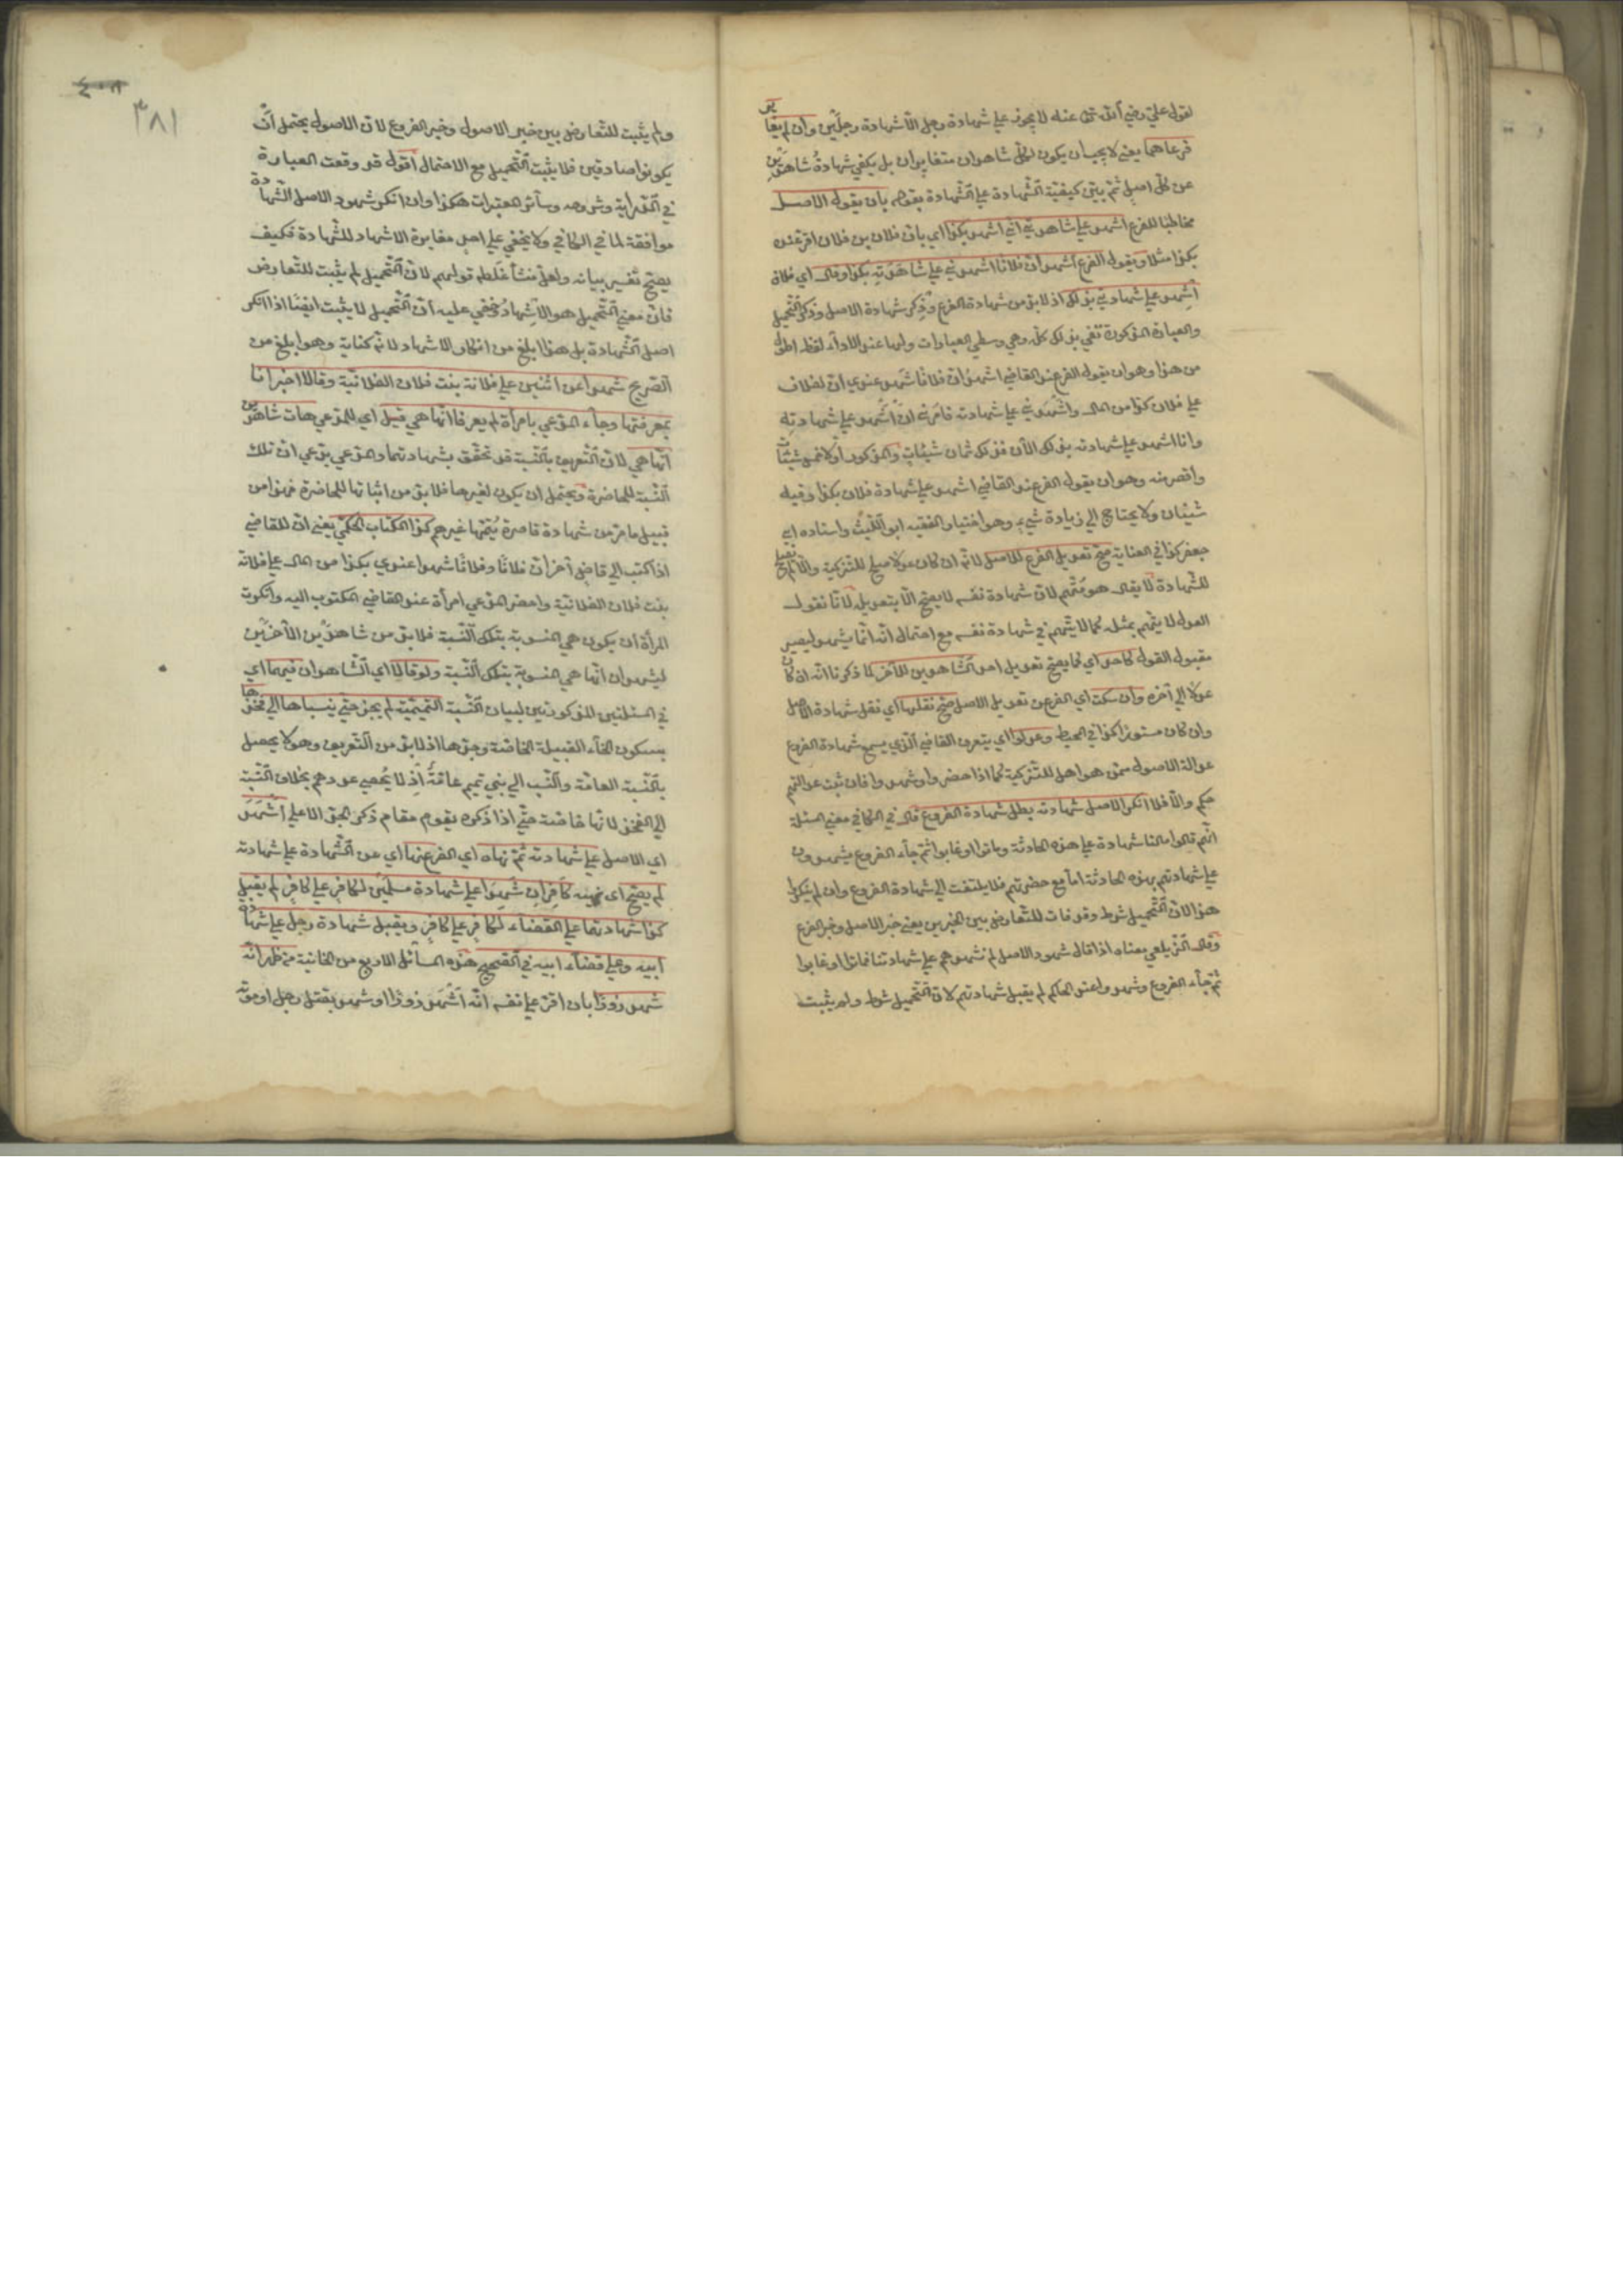 لقول علي رضي الله تعالى عنه لا يجوز على شهادة رجل الا شهادة رجلين وان لم يتغاير
فرعاهما يعني لا يجب ان يكون لكل شاهدان متغايران بل يكفي شهادة شاهدين
عن كل اصل ثم بين كيفية الشهادة على الشهادة بقوله بان يقول الاصل
مخاطبا للفرع اشهد على شهادتي اني اشهد بكذا اي بان فلان بن فلان اقر عنده
بكذا مثلا ويقول الفرع اشهد ان فلانا اشهدني على شهادته بكذا وقال اي فلان
اشهد على شهادتي بذلك اذ لا بد من شهادة الفرع وذكر شهادة الاصل وذكر التحميل
والعبارة المذكورة تفي بذلك كله وهي وسطى العبارات ولها عند الاداء لفظ اطول
من هذا وهو ان يقول الفرع عند القاضي اشهد ان فلانا شهد عندي ان لفلان
على فلان كذا من المال واشهدني على شهادته فامرني ان اشهد على شهادته
وانا اشهد على شهادته بذلك الآن فذلك ثمان شينات والمذكور اولا خمس شينات
واقصر منه وهو ان يقول الفرع عند القاضي اشهد على شهادة فلان بكذا وفيه
شينان ولا يحتاج الى زيادة شيء وهو اختيار الفقيه ابو الليث واستاده ابي
جعفر كذا في العناية صح تعديل الفرع للاصل لانه ان كان عدلا صلح للتزكية والا لم تصلح
للشهادة لا يقال هو متهم لان شهادة نفسه لا يصح الا بتعديله لانا نقول
العدل لا يتهم بمثله كما لا يتهم في شهادة نفسه مع احتمال انه انما يشهد ليصير
مقبول القول كاحد اي كما يصح تعديل احد الشاهدين للآخر لما ذكرنا انه ان كان
عدلا الى آخره وان سكت اي الفرع عن تعديل الاصل صح نقلها اي نقل شهادة الاصل
وان كان مستورا كذا في المحيط وعدلوا اي يتعرف القاضي الذي يسمع شهادة الفرع
عدالة الاصول ممن هو اهل للتزكية كما اذا حضروا وشهدوا فان ثبت عدالتهم
حكم والا فلا انكر الاصل شهادته بطل شهادة الفروع قال في الكافي معنى المسئلة
انهم قالوا ما لنا شهادة على هذه الحادثة وماتوا او غابوا ثم جاء الفروع يشهدون
على شهادتهم بهذه الحادثة اما مع حضرتهم فلا يلتفت الى شهادة الفروع وان لم ينكروا
هذا لان التحميل شرط وقد فات للتعارض بين الخبرين يعني خبر الاصل وخبر الفرع
وقال الزيلعي معناه اذا قال شهود الاصل لم نشهدهم على شهادتنا فماتوا او غابوا
ثم جاء الفروع وشهدوا عند الحاكم لم يقبل شهادتهم لان التحميل شرط ولم يثبت
٤٠٨
٣٨١
ولم يثبت للتعارض بين خبر الاصول وخبر الفروع لان الاصول يحتمل ان
يكونوا صادقين فلا يثبت التحميل مع الاحتمال اقول قد وقعت العبارة
في الهداية وشروحه وسائر المعتبرات هكذا وان انكر شهود الاصل الشهادة
موافقة لما في الكافي ولا يخفى على احد مغايرة الاشهاد للشهادة فكيف
يصح تفسير بيانه ولعل منشأ غلطه قولهم لان التحميل لم يثبت للتعارض
فان معنى التحميل هو الاشهاد وخفي عليه ان التحميل لا يثبت ايضا اذا انكر
اصل الشهادة بل هذا ابلغ من انكار الاشهاد لانه كناية وهو ابلغ من
الصريح شهدا عن اثنين على فلانة بنت فلان الفلانية وقالا اخبرانا
بمعرفتها وجاء المدعي بامرأة لم يعرفا انها هي قيل اي للمدعي هات شاهدين
انها هي لان التعريف بالنسبة قد تحقق بشهادتهما والمدعي يدعي ان تلك
النسبة للحاضرة ويحتمل ان يكون لغيرها فلا بد من اثباتها للحاضرة فهذا من
قبيل ما مر من شهادة قاصرة يتمها غيرهم كذا الكتاب الحكمي يعني ان القاضي
اذا كتب الى قاض آخر ان فلانا وفلانا شهدا عندي بكذا من المال على فلانة
بنت فلان الفلانية واحضر المدعي امرأة عند القاضي المكتوب اليه وانكرت
المرأة ان يكون هي المنسوبة بتلك النسبة فلا بد من شاهدين الآخرين
ليشهدان انها هي المنسوبة بتلك النسبة ولو قالا اي الشاهدان فيهما اي
في المسئلتين المذكورتين لبيان النسبة التميمية لم يجز حتى ينسباها الى فخذها
بسكون الخاء القبيلة الخاصة وجدها اذ لا بد من التعريف وهو لا يحصل
بالنسبة العامة والنسب الى بني تميم عامة اذ لا يحصى عددهم بخلاف النسبة
الى الفخذ لانها خاصة حتى اذا ذكره يقوم مقام ذكر الجد الاعلى اشهد
اي الاصل على شهادته ثم نهاه اي الفرع عنها اي عن الشهادة على شهادته
لم يصح اي نهيه كافران شهدا على شهادة مسلمين لكافر على كافر لم يقبل
كذا شهادتهما على القضاء لكافر على كافر ويقبل شهادة رجل على شهادة
ابيه وعلى قضاء ابيه في الصحيح هذه المسائل الاربع من الخانية من ظهر انه
شهد زورا بان اقر على نفسه انه اشهد زورا او شهد بقتل رجل او موته